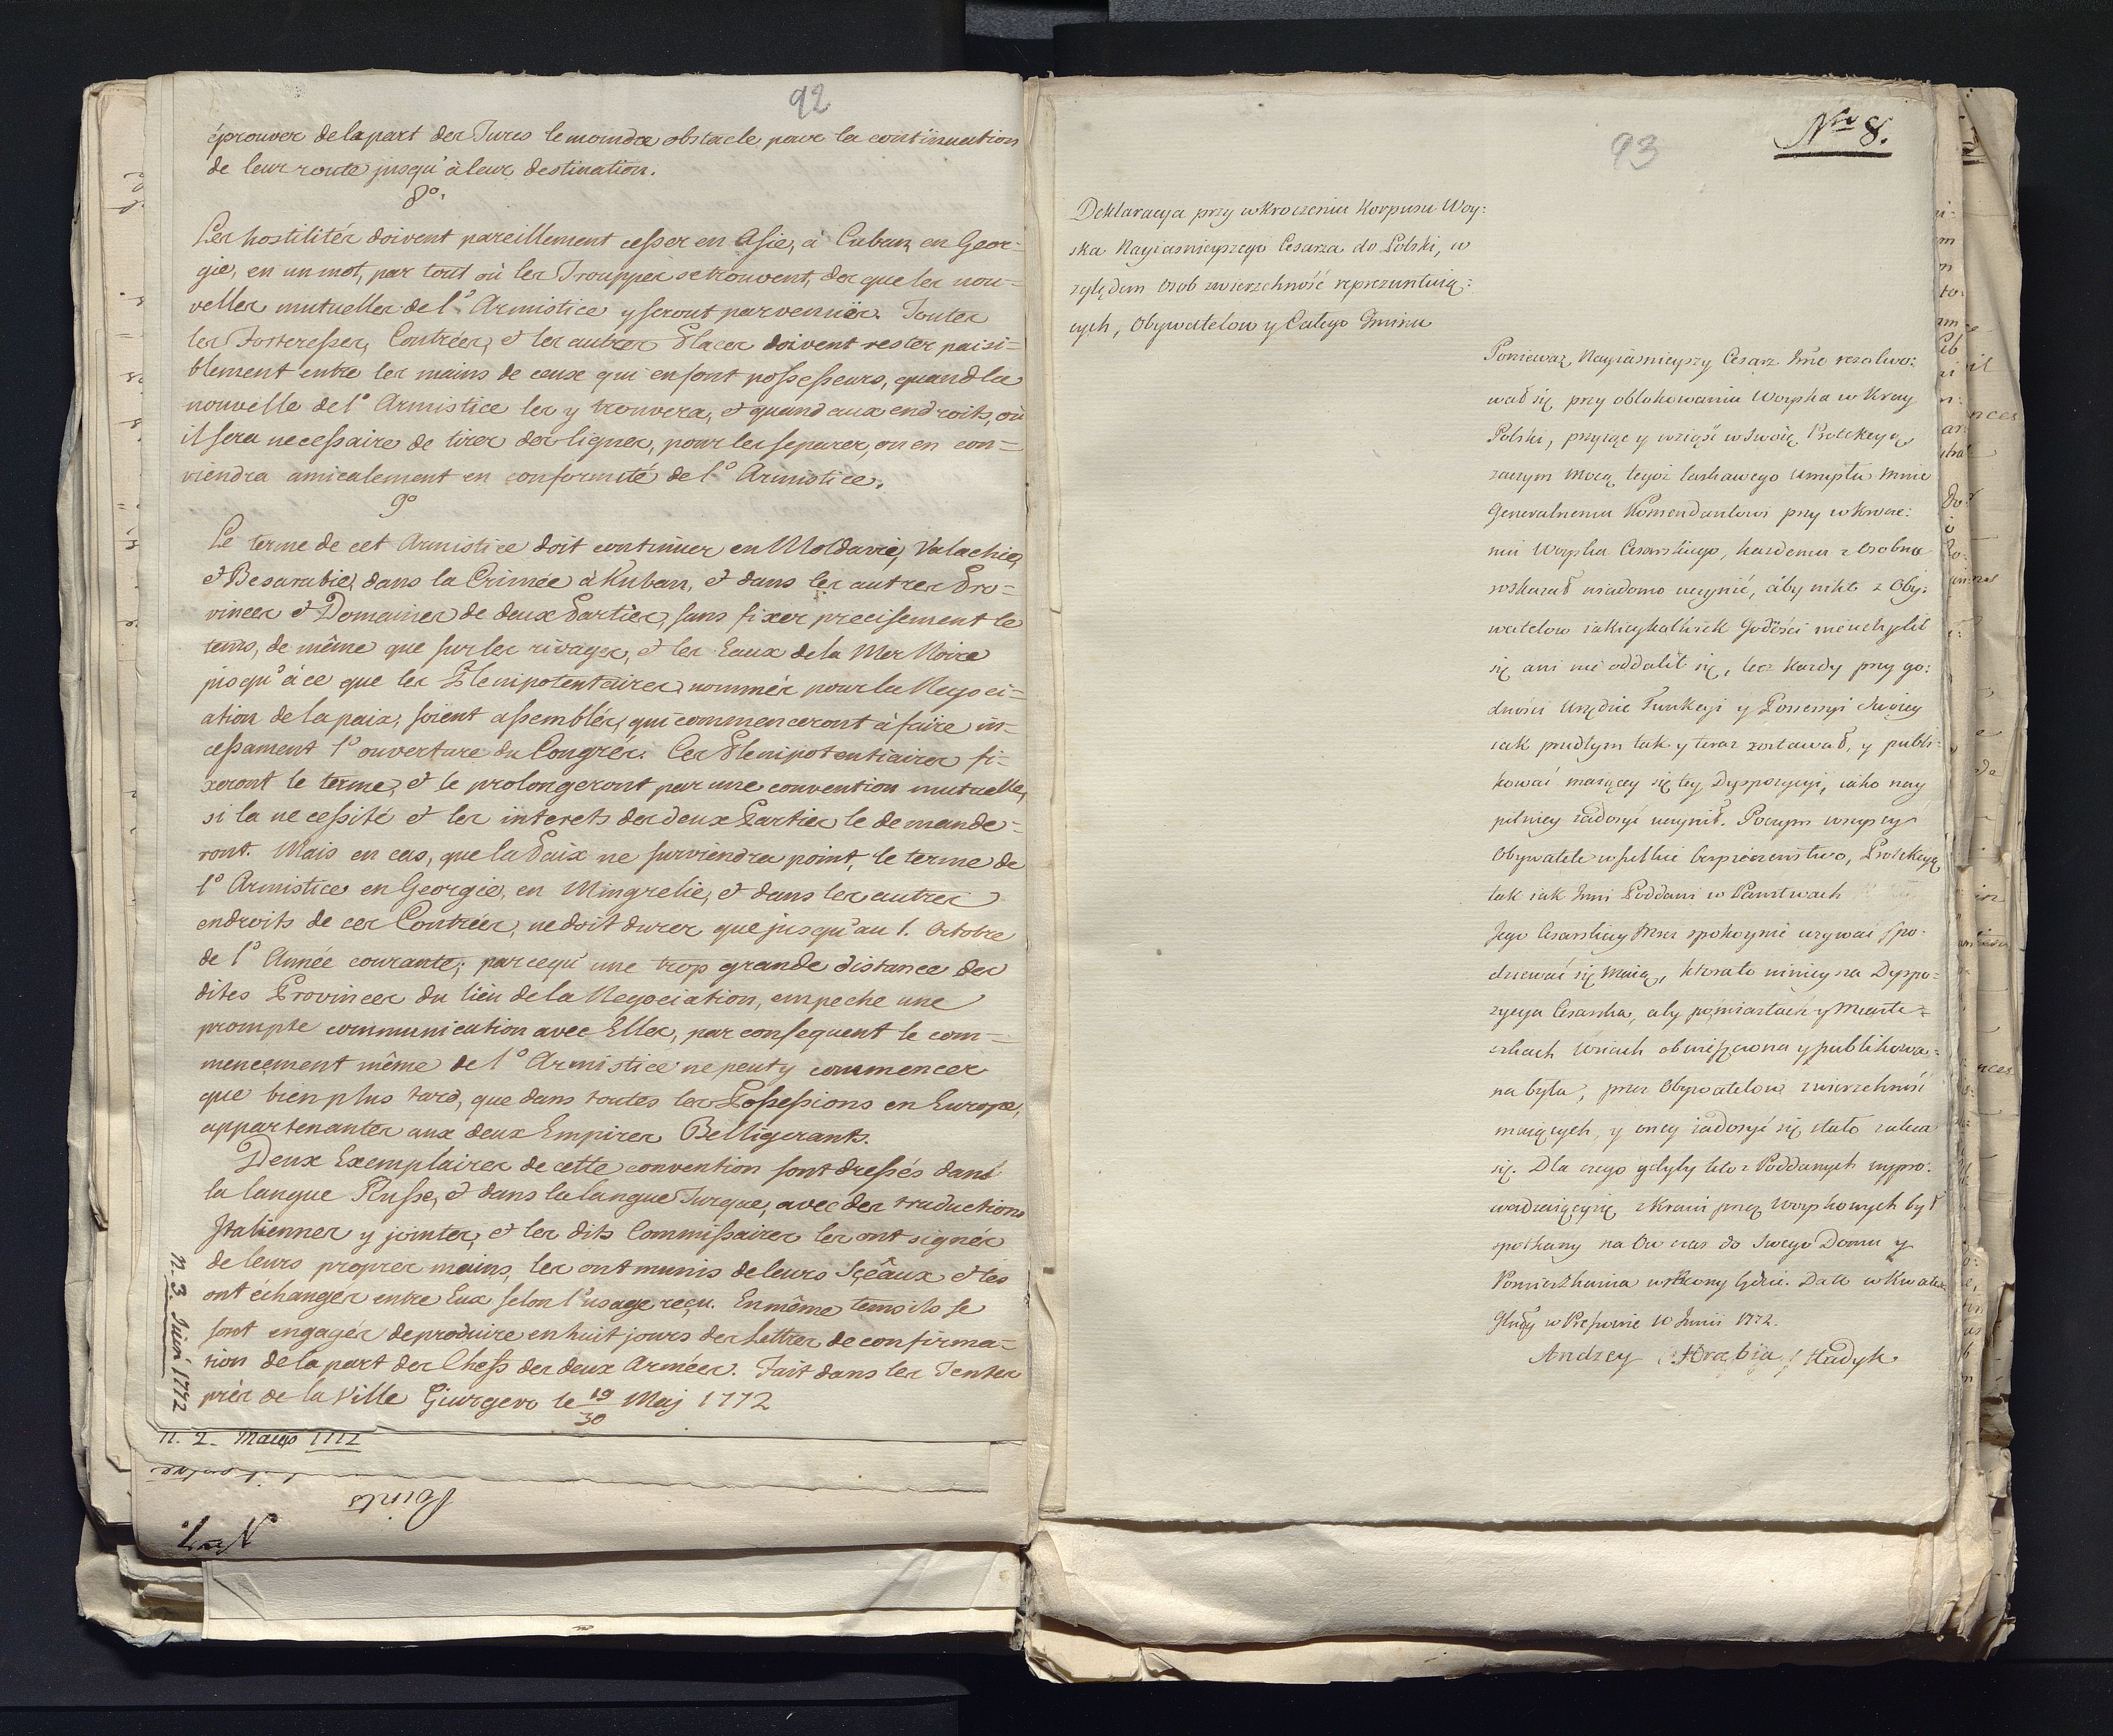 92
éprouver de la part des Turcs le moindre obstacle pour la continuation
de leur route jusqu'à leur destination.
8°.
Les hostilités doivent pareillement cesser en Asie, à Cuban, en Geor=
gie, en un mot, par tout où les Trouppes se trouvent, des que les nou=
velles mutuelles de l'Armistice y seront parvenües. Toutes
les Forteresses, Contrées, et les autres Places doivent rester paisi=
blement entre les mains de ceux qui en sont possesseurs, quand la
nouvelle de l'Armistice les y trouvera, et quand aux endroits, où
il sera necessaire de tirer des lignes, pour les separer, on en con=
viendra amicalement en conformité de l'Armistice.
9°
Le terme de cet Armistice doit continuer en Moldavie, Valachie,
et Besarabie, dans la Crimée à Kuban, et dans les autres Pro=
vinces et Domaines de deux Parties, sans fixer precisement le
tems, de même que sur les rivages, et les Eaux de la Mer Noire
jusqu'à ce que les Plenipotentaires nommés pour la Negoci=
ation de la paix, soient assemblés, qui commenceront à faire in=
cessament l'ouverture du Congrés. Ces Plenipotentiaires fi=
xeront le terme, et le prolongeront par une convention mutuelle,
si la necessité et les interets des deux Parties le demande=
ront. Mais en cas, que la Paix ne surviendra point, le terme de
l'Armistice en Georgie, en Mingrelie, et dans les autres
endroits de ces Contrées, ne doit durer que jusqu'au 1. Octobre
de l'Année courante; parcequ'une trop grande distance des
dites Provinces du lieu de la Negociation, empeche une
prompte communication avec Elles, par consequent le com=
mencement même de l'Armistice ne peut y commencer
que bien plus tard, que dans toutes les Possessions en Europe,
appartenantes aux deux Empires Belligerants.
Deux Exemplaires de cette convention sont dressés dans
la langue Russe, et dans la langue Turque, avec des traductions
Italiennes y jointes, et les dits Commissaires les ont signés
de leurs propres mains, les ont munis de leurs Sçêaux et les
ont échangés entre Eux selon l'usage reçu. En même tems ils se
sont engagés de produire en huit jours des Lettres de confirma=
tion de la part des Chefs des deux Armées. Fait dans les Tentes
près de la Ville Giurgevo le 19/30 Maj 1772
n. 3 Juin 1772
n. 2. Mayo 1772
Points
93
Nro 8.
Deklaracya przy wkroczeniu Korpusu Woy:
ska Nayiasnieyszego Cesarza do Polski, w
zględem Osob zwierzchność reprezentuią:
cych, Obywatelow y Całego Gminu
Ponieważ Nayiasnieyszy Cesarz Jmć rezolwo:
wał się przy oblokowaniu Woyska w Kray
Polski, przyiąć y wziąść w Swoię Protekcyą,
zaczym mocą tegoż łaskawego Umysłu mnie
Generalnemu Komendantowi przy wkrocze:
niu Woyska Cesarskiego, każdemu z Osobna
roskazał wiadomo uczynić, aby nikt z Oby:
watelow iakieykolwiek Godności nieuchylił
się ani nie oddalił się, lecz każdy przy go:
dności Urzędzie Funkcyi y Possessyi Swoiey
iak przedtym tak y teraz zostawał, y publi=
kować maiącey się tey Dyspozycyi, iako nay
pilniey zadosyć uczynił. Poczym wszyscy
Obywatele wszelkie bespieczenstwo, Protekcyą
tak iak Inni Poddani w Panstwach
Jego Cesarskiey Mści spokoynie uzywać spo:
dziewać się maią, ktorato ninieysza Dyspo=
zycya Cesarska, aby po miastach y Miaste=
czkach Wsiach obwieszczona y publikowa=
na była, przez Obywatelow zwierzchność
maiących, y oney zadosyć się stało zaleca
się. Dla czego gdyby kto z Poddanych wypro:
wadzaiącysię z Kraiu przez Woyskowych był
spotkany na Ow czas do Swego Domu y
Pomieszkania wrócony będzie. Datt w Kwaterze
Główy w Preszowie 10 Junii 1772.
Andrzey Hrabia Hadyk